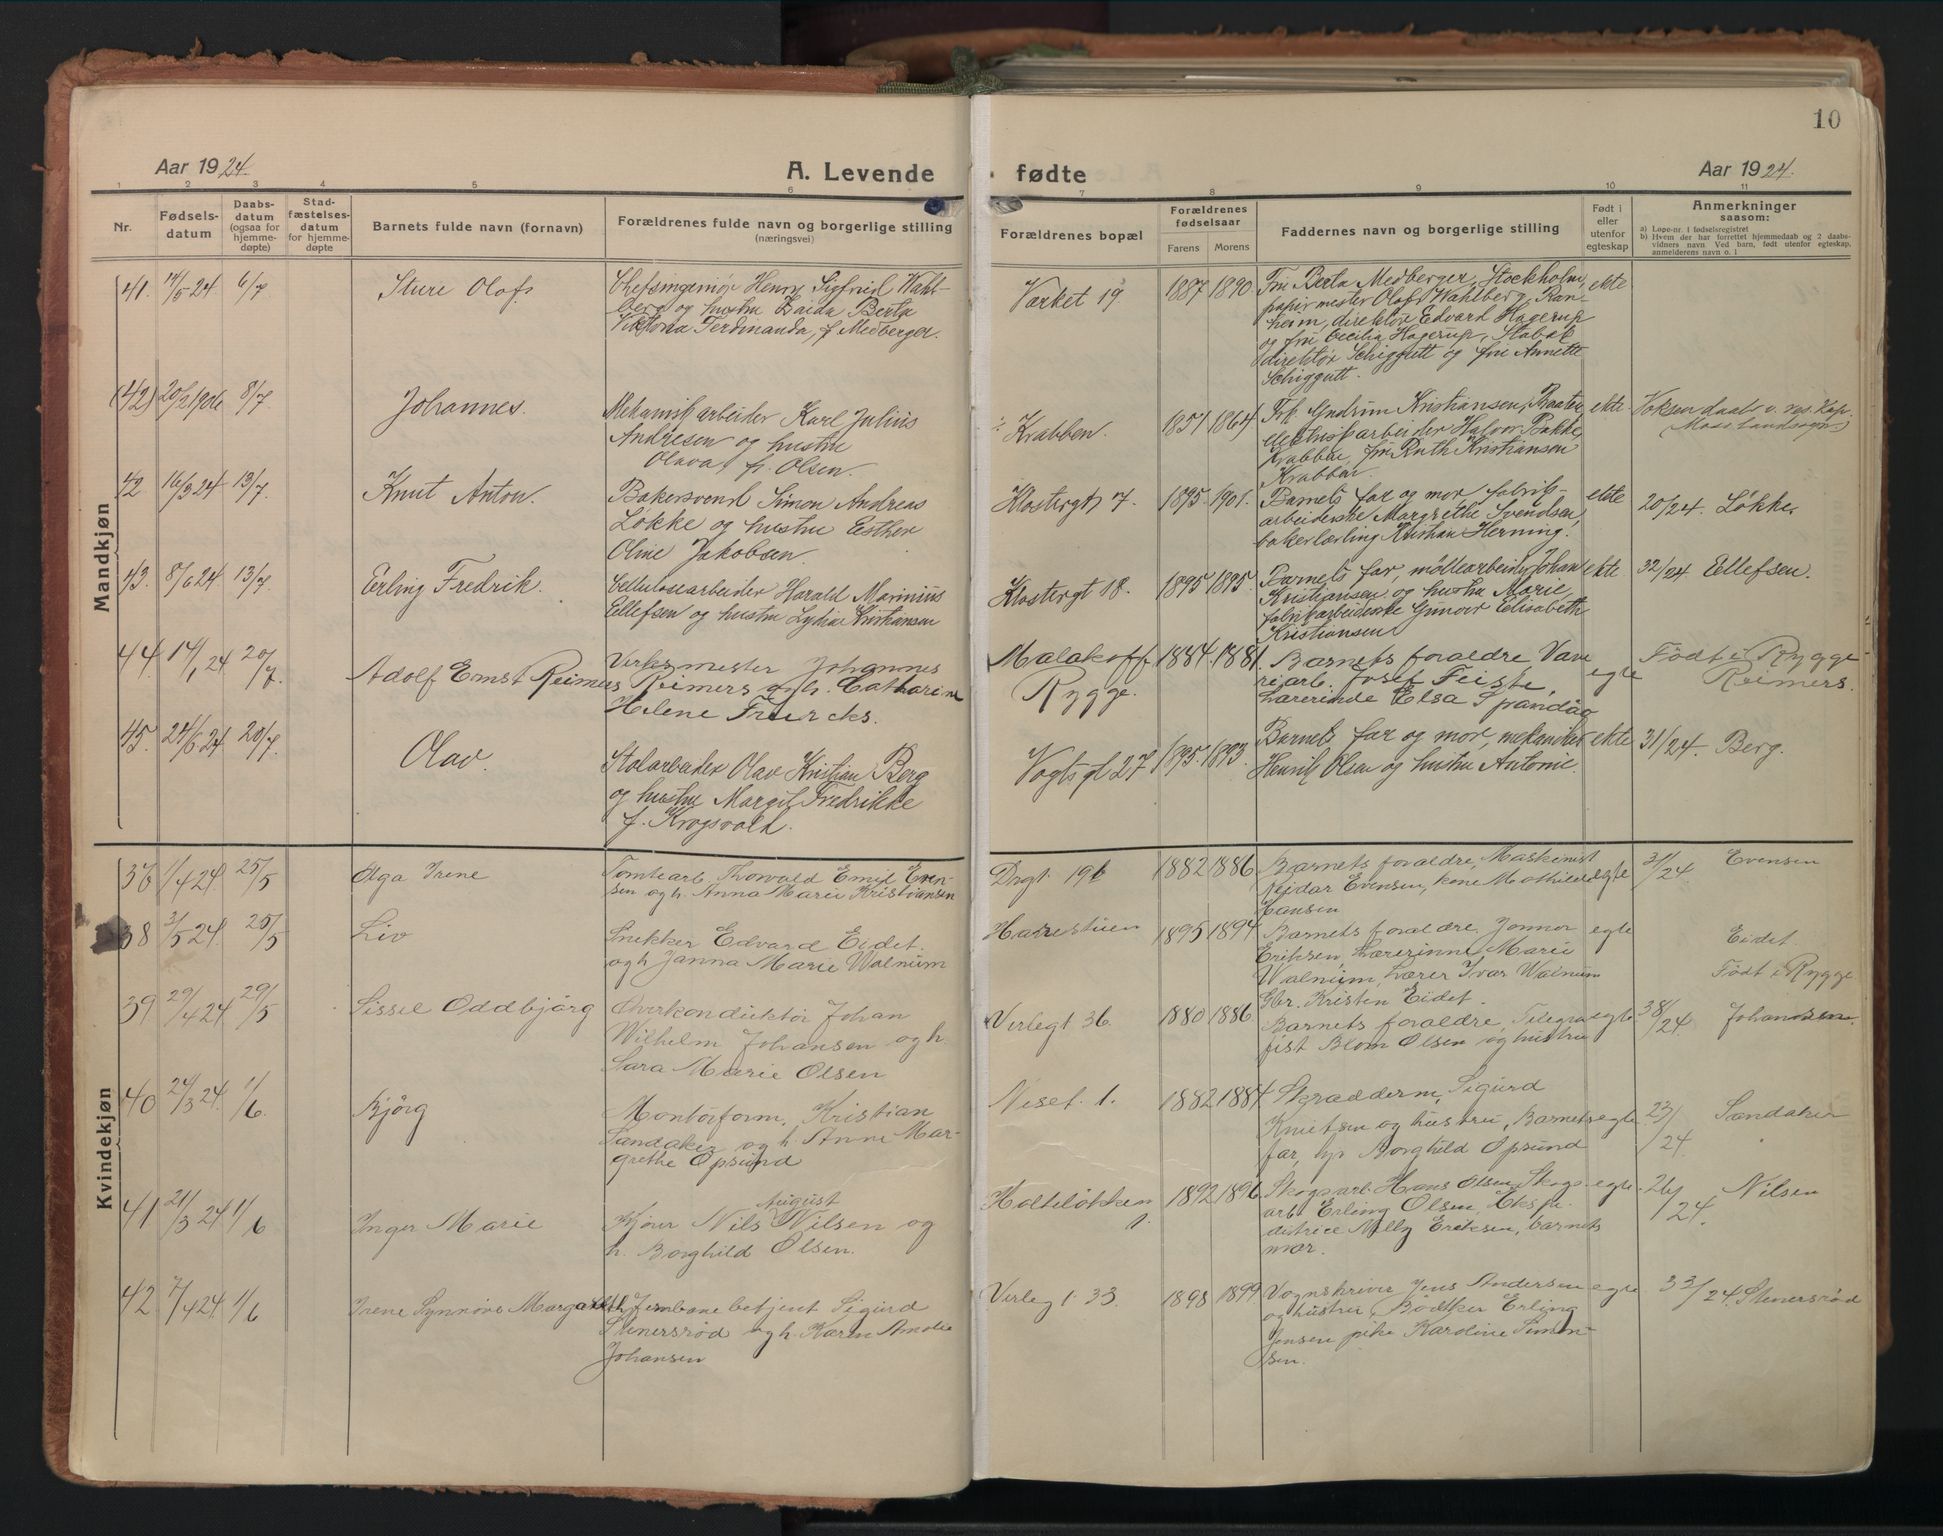 10
Aar 1924.
A. Levende
fødte
Aar 1924.
1 2 3 4 5 6 7 8 9 10 11
Nr.
Fødsels-
datum
Daabs-
datum
(ogsaa for
hjemme-
døpte)
Stad-
fæstelses-
datum
for hjemme-
døpte
Barnets fulde navn (fornavn)
Forældrenes fulde navn og borgerlige stilling
(næringsvei)
Forældrenes bopæl
Forældrenes
fødselsaar
Farens Morens
Faddernes navn og borgerlige stilling
Født i
eller
utenfor
egteskap
Anmerkninger
saasom:
a) Løpe-nr. i fødselsregistret
b) Hvem der har forrettet hjemmedaab og 2 daabs-
vidners navn Ved barn, født utenfor egteskap,
anmelderens navn o. l
Mandkjøn
41. 14/5 24 6/7 Sture Olof
Chefsingeniør Henry Sigfrid Wahl-
berg og hustru Zaida Berta
Viktoria Ferdinanda, f. Medberger.
Værket 19
1887 1890
Fru Berta Medberger, Stockholm
papirmester Olof Wahlberg, Ran-
heim, direktør Edvard Hagerup
og fru Cecilia Hagerup, Stabæk
direktør Schiggutt og fru Annette
Schiggutt.
ekte
(42) 20/2 1906 8/7 Johannes.
Mekanisk arbeider Karl Julius
Andresen og hustru
Olava, f. Olsen.
Krabben.
1851 1864
Frk. Gudrun Kristiansen, Braaten
elektrisk arbeider Halvor Bakke,
Krabben, fru Ruth Kristiansen
Krabben
ekte
Voksen daab v. res. Kap.
Moss landsogn
42 16/3 24 13/7 Knut Anton.
Bakersvend Simon Andreas
Løkke og hustru Esther
Oline Jakobsen.
Klostergt 7.
1895 1901.
Barnets far og mor, fabrik-
arbeiderske Margrethe Svendsen,
bakerlærling Kristian Herning.
ekte
20/24. Løkke.
43. 8/6 24 13/7 Erling Fredrik.
Cellulosearbeider Harald Marinius
Ellefsen og hustru Lydia Kristiansen
Klostergt 18.
1895 1895.
Barnets far, møllearbeider Johan
Kristiansen og hustru Marie,
fabrikarbeiderske Gunvor Elisabeth
Kristiansen
ekte
32/24 Ellefsen.
44. 14/1 24 20/7. Adolf Ernst Reimers
Verksmester Johannes
Reimers og h. Catharine
Helene Freircks.
Malakoff
Rygge.
1884. 1881.
Barnets foraldre Vave
riarb. Josef Feiste,
Lærerinde Elsa Spandåg
egte
Født i Rygge
Reimers.
45. 24/6 24. 20/7. Olav.
Stolarbeider Olav Kristian Berg
og hustru Margit Fredrikke
f. Krogsvold.
Vogtsgt 27
1895. 1893.
Barnets far og mor, mekaniker
Henrik Olsen og hustru Antonie.
ekte
31/24. Berg.
Kvindekjøn
36 1/4 24. 25/5 Olga Irene
Tomtearb. Thorvald Emil Even-
sen og h. Anna Marie Kristiansen
Drgt. 196
1882 1886
Barnets foraldre, Maskinist
Reidar Evensen, kone Mathilde
Hansen
egte
31/24 Evensen
38 3/5 24. 25/5 Liv
Snekker Edvard Eidet.
og h. Janna Marie Walnum
Harestuen
1895 1894
Barnets foraldre. Jonnor
Eriksen, Lærerinne Marie
Walnum, Lærer Ivar Walnum
Gbr. Kristen Eidet.
egte
Eidet.
Født i Rygge
39 29/4 24 29/5 Sissel Oddbjörg
Overkonduktör Johan
Wilhelm Johansen og h.
Sara Marie Olsen
Verlegt 36.
1880 1886
Barnets foraldre, Telegra
fist Blom Olsen og hustru
egte
38/24. Johansen.
40 24/3 24. 1/6 Bjørg
Montörform. Kristian
Sandaker og h. Anne Mar-
grethe Opsund
Neset. 1.
1882 1884
Skradderm, Sigurd
Knutsen og hustru, Barnets
far, frk Borghild Opsund
egte
23/24. Sandaker
41 21/3 24 1/6 Inger Marie
August
Kjører Nils Nilsen og
h. Borghild Olsen.
Holteløkken
1.
1892 1896
Skogsarb. Hans Olsen, Skogs-
arb Erling Olsen, Ekspe-
ditrice Nelly Eriksen, barnets
mor.
egte.
26/24. Nilsen
42 7/4 24. 1/6 Irene Synnöve Margareth
Jernbanebetjent Sigurd
Stenersrød og h. Karen Amalie
Johansen
Verleg 1. 33.
1898 1899
Vognskriver Jens Andersen
og hustru, Bödtker Erling
Jensen pike Karoline Simon-
sen.
egte
33/24. Stenersrød